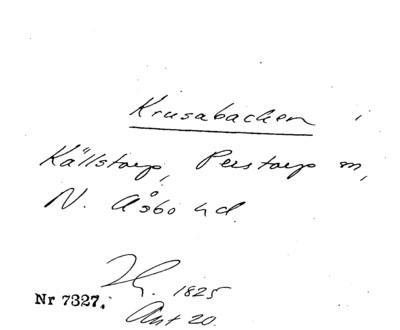 Krusabacken i
Källstorp, Perstorp sn,
N. Åsbo hd.
1825
Nr 7327.
Ant 20.